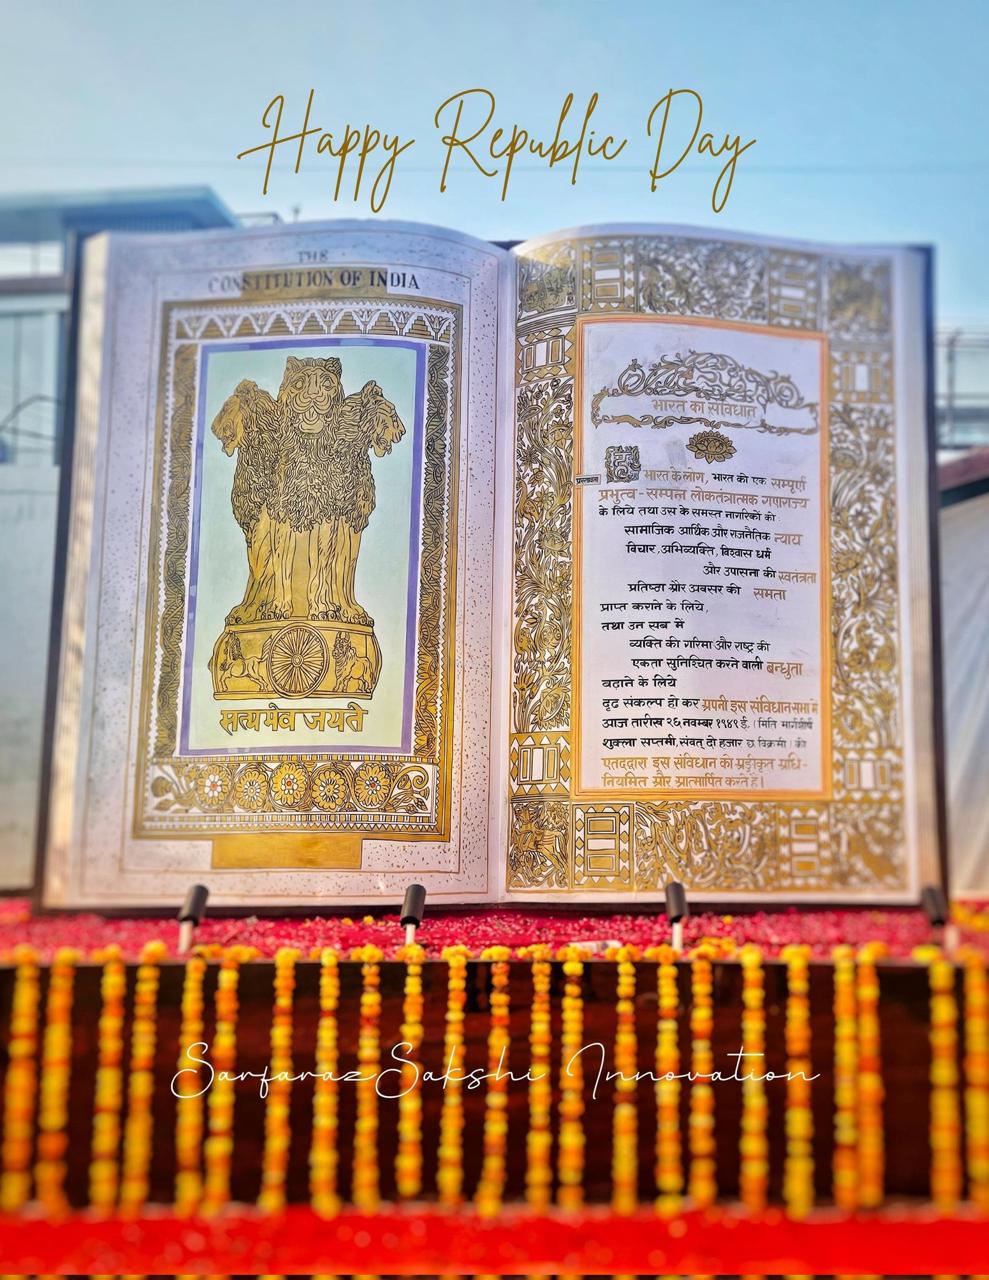 Happy Republic Day
THE
CONSTITUTION OF INDIA
सत्यमेव जयते
भारत का संविधान
प्रस्तावना
हम भारत के लोग, भारत को एक सम्पूर्ण
प्रभुत्व - सम्पन्न लोकतंत्रात्मक गणराज्य
के लिये तथा उस के समस्त नागरिकों को :
सामाजिक आर्थिक और राजनैतिक न्याय
विचार, अभिव्यक्ति, विश्वास धर्म
और उपासना की स्वतंत्रता
प्रतिष्ठा और अवसर की समता
प्राप्त कराने के लिये,
तथा उन सब में
व्यक्ति की गरिमा और राष्ट्र की
एकता सुनिश्चित करने वाली बन्धुता
बढ़ाने के लिये
दृढ संकल्प हो कर अपनी इस संविधान सभा में
आज तारीख २६ नवम्बर १९४९ ई. (मिति मार्गशीर्ष
शुक्ला सप्तमी, संवत् दो हजार छ विक्रमी) को
एतदद्वारा इस संविधान को अङ्गीकृत अधि-
नियमित और आत्मार्पित करते हैं।
SarfarazSakshi Innovation